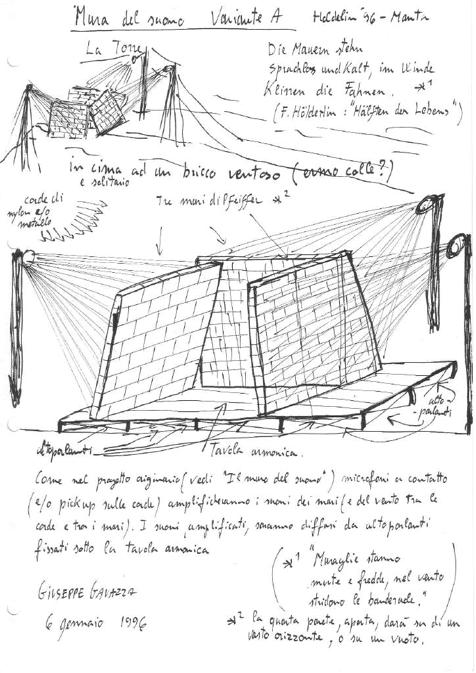 Mura del suono Variante A Hoelderlin 96 - Mantr
La Torre
Die Mauern stehn
Sprachlos und Kalt, im Winde
Klirren die Fahnen. *1
(F. Hölderlin : "Hälften der Lebens")
in cima ad un bricco ventoso (ermo colle?)
e solitario
corde di
nylon e/o
metallo
Tre muri di Pfeiffer *2
alto-
-parlanti
altoparlanti
Tavola armonica.
Come nel progetto originario (vedi "Il muro del suono") microfoni a contatto
(e/o pick up sulle corde) amplificheranno i suoni dei muri (e del vento tra le
corde e tra i muri). I suoni, amplificati, saranno diffusi da altoparlanti
fissati sotto la tavola armonica
*1 "Muraglie stanno
mute e fredde, nel vento
stridono le banderuole."
GIUSEPPE GAVAZZA
6 gennaio 1996
*2 la quarta parete, aperta, darà su di un
vasto orizzonte, o su un vuoto.